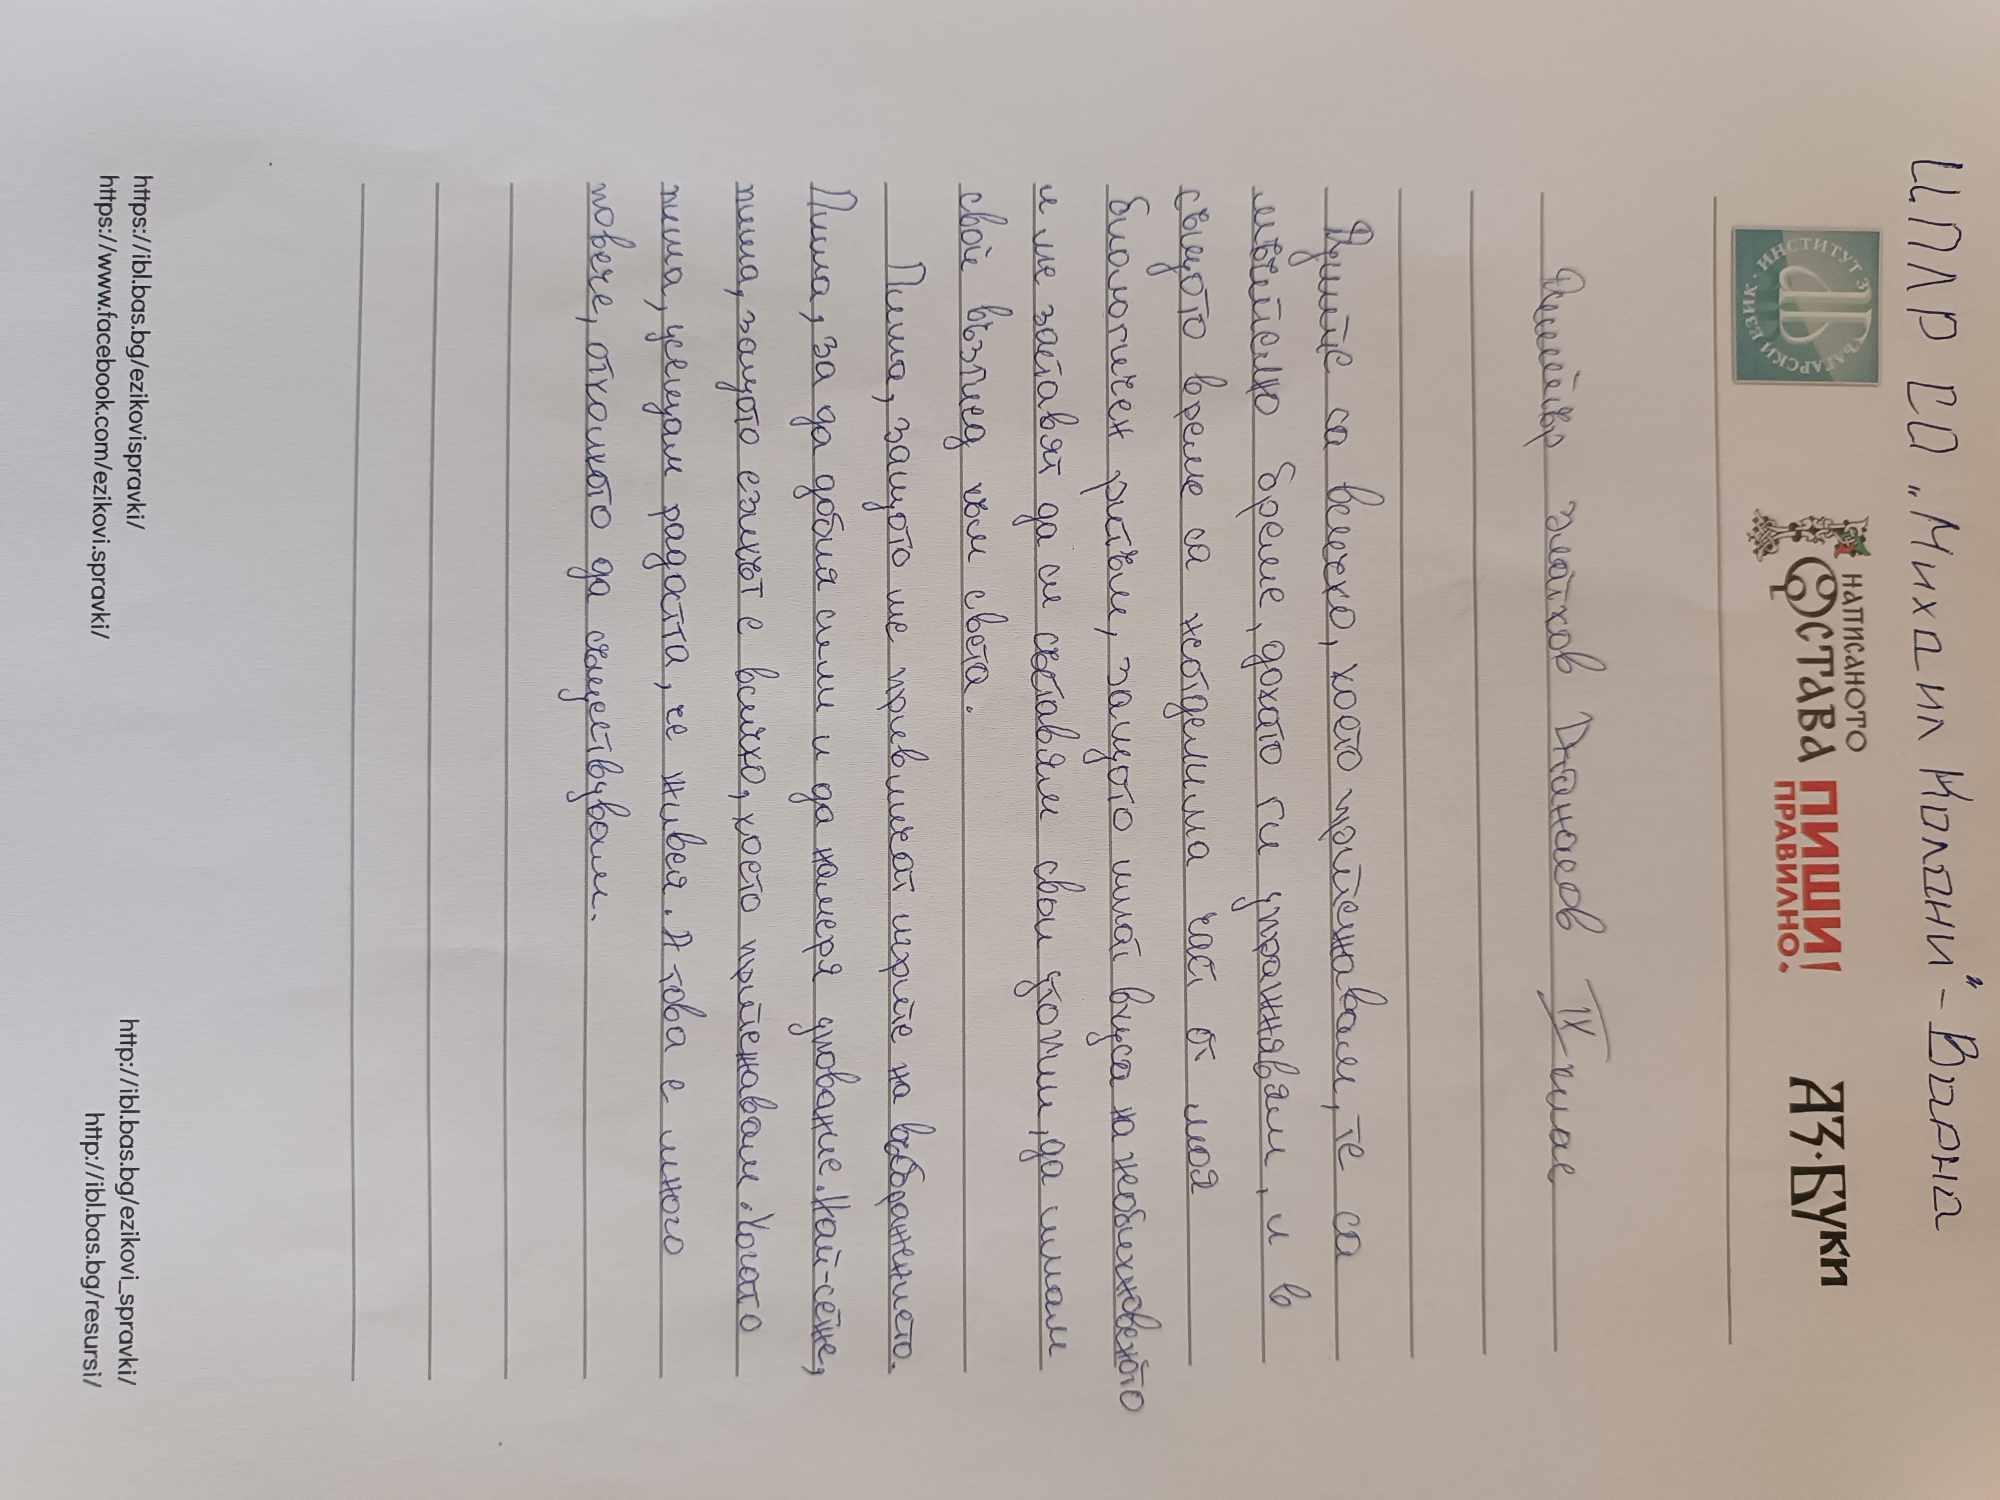 ЦПЛР СО „Михаил Колони" – Варна
ИНСТИТУТ ЗА БЪЛГАРСКИ ЕЗИК
НАПИСАНОТО
ОСТАВА
ПИШИ
ПРАВИЛНО!
АЗ·БУКИ
Димитър Златков Атанасов IX клас
Думите са всичко, което притежавам, те са
мъчително бреме, докато ги упражнявам, и в
същото време са неотделима част от моя
биологичен ритъм, защото имат вкуса на необикновеното
и ме заставят да си съставям свои утопии, да имам
свой възглед към света.
Пиша, защото ме привличат игрите на въображението.
Пиша, за да добия сили и да намеря упование. Най-сетне,
пиша, защото езикът е всичко, което притежавам. Когато
пиша, усещам радостта, че живея. А това е много
повече, отколкото да съществувам.
https://ibl.bas.bg/ezikovispravki/
https://www.facebook.com/ezikovi.spravki/
http://ibl.bas.bg/ezikovi_spravki/
http://ibl.bas.bg/resursi/